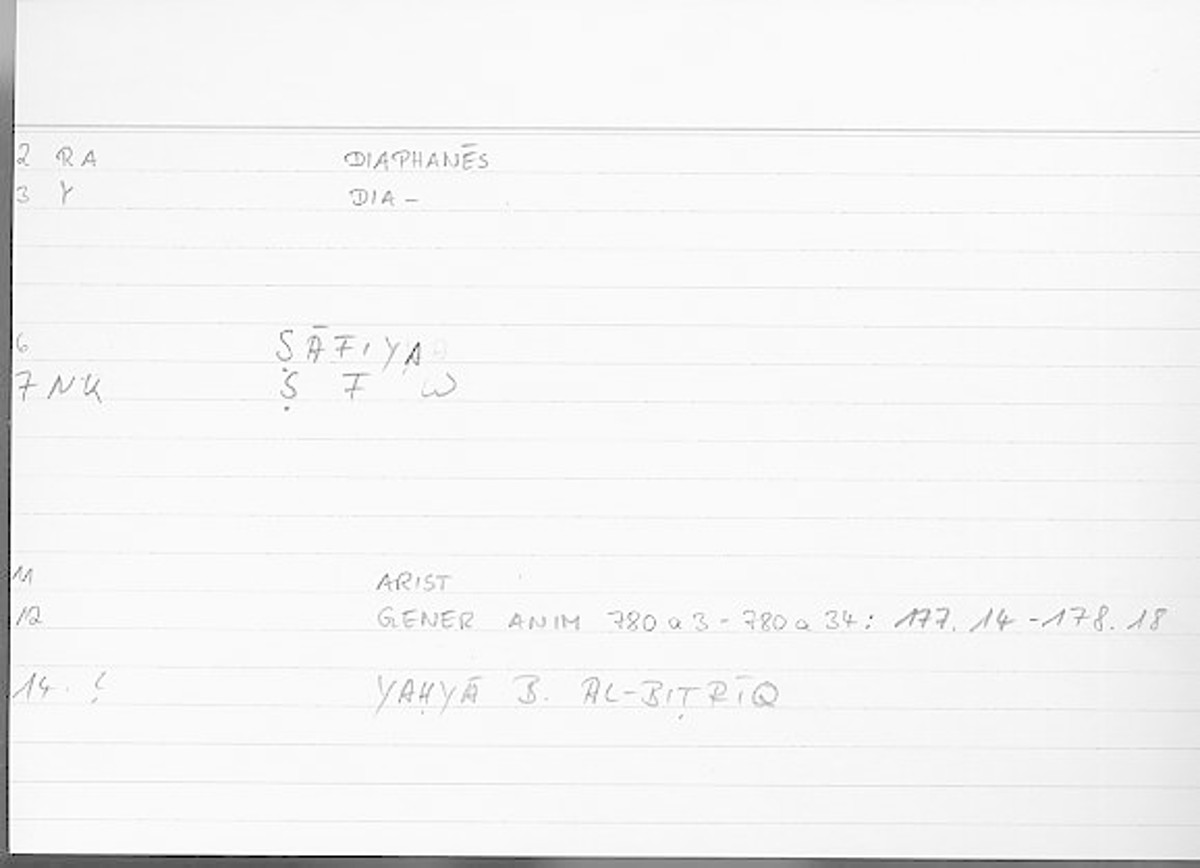 2 RA DIAPHANĒS
3 Y DIA-
6 ṢĀFIYA
7 NK Ṣ F W
11 ARIST
12 GENER ANIM 780a3-780a34: 177.14-178.18
14. YAḤYĀ B. AL-BIṬRĪQ